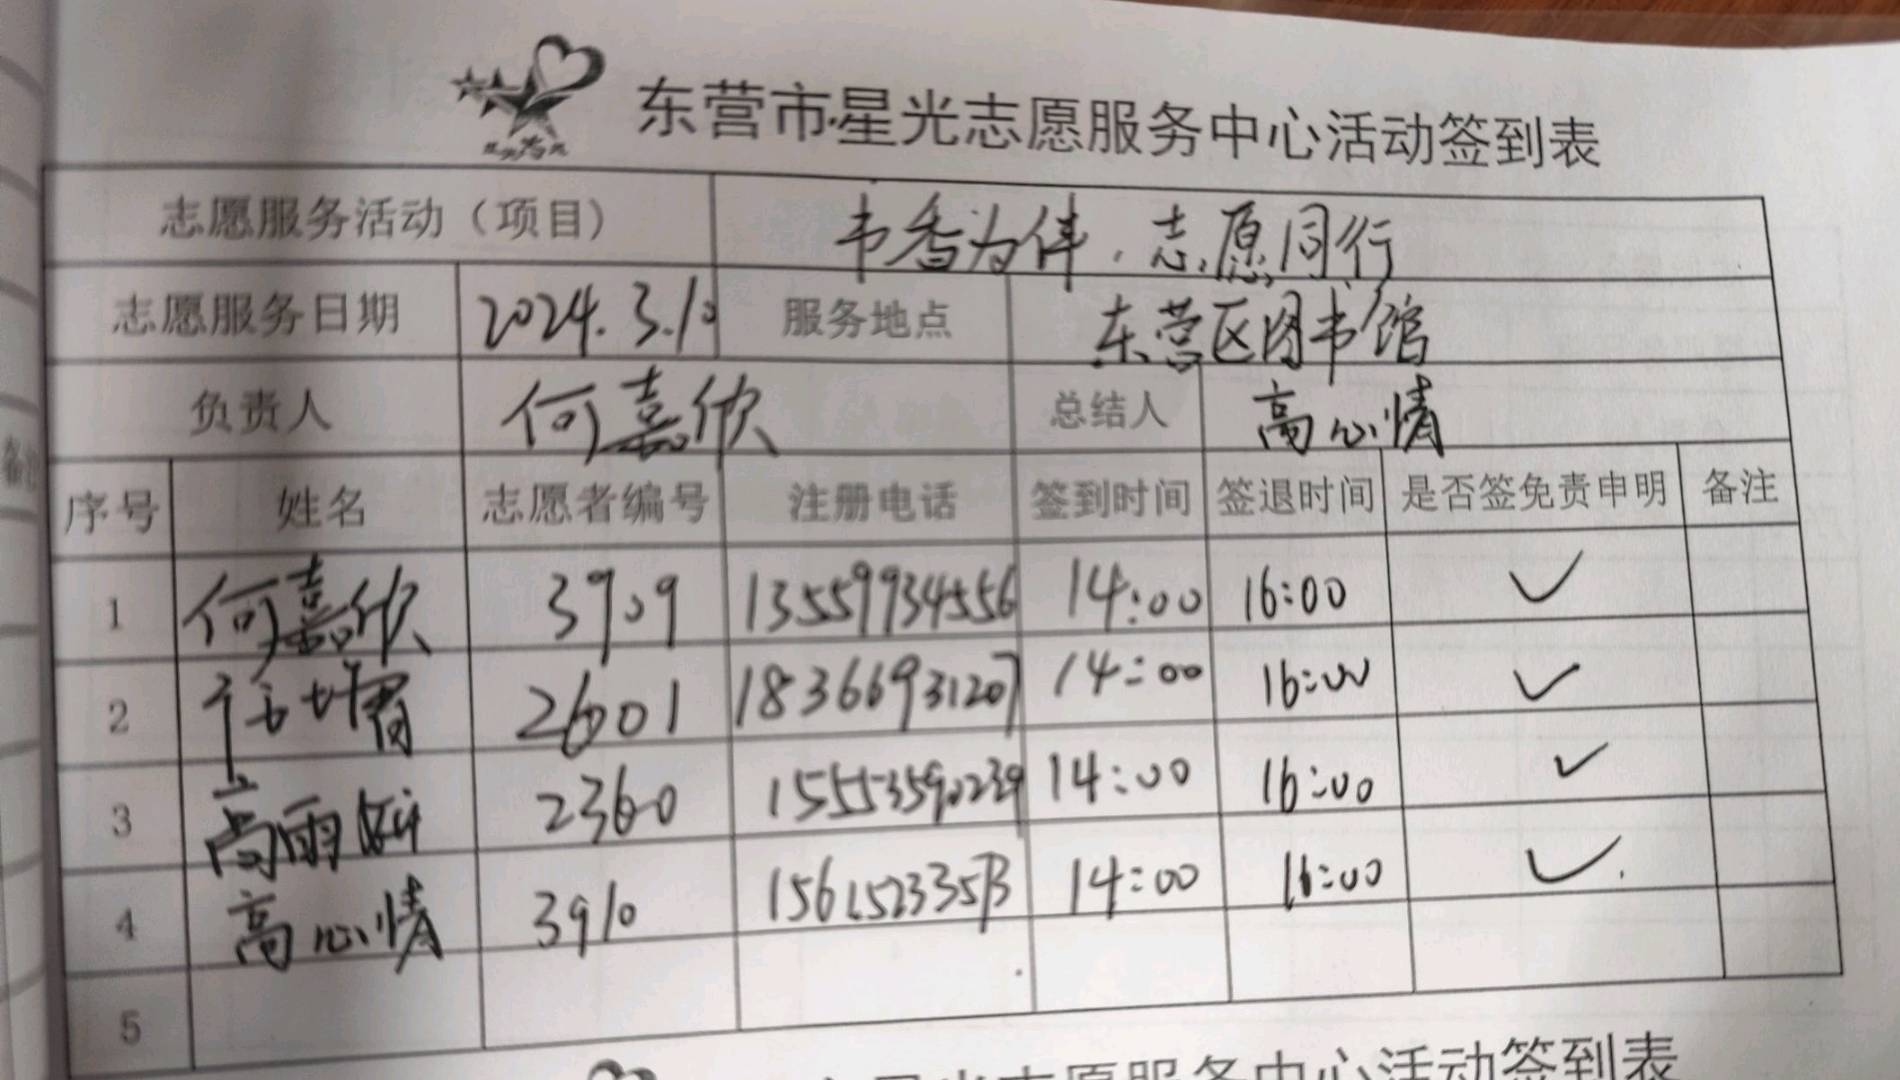 东营市·星光志愿服务中心活动签到表
志愿服务活动（项目） 书香为伴，志愿同行
志愿服务日期 2024.3.10 服务地点 东营区图书馆
负责人 何嘉欣 总结人 高心情
序号 姓名 志愿者编号 注册电话 签到时间 签退时间 是否签免责申明 备注
1 何嘉欣 3909 13559934556 14:00 16:00 ✓
2 2601 18366931207 14:00 16:00 ✓
3 高雨 2360 15553590239 14:00 16:00 ✓
4 高心情 3910 14:00 16:00 ✓
5
星光志愿服务中心活动签到表